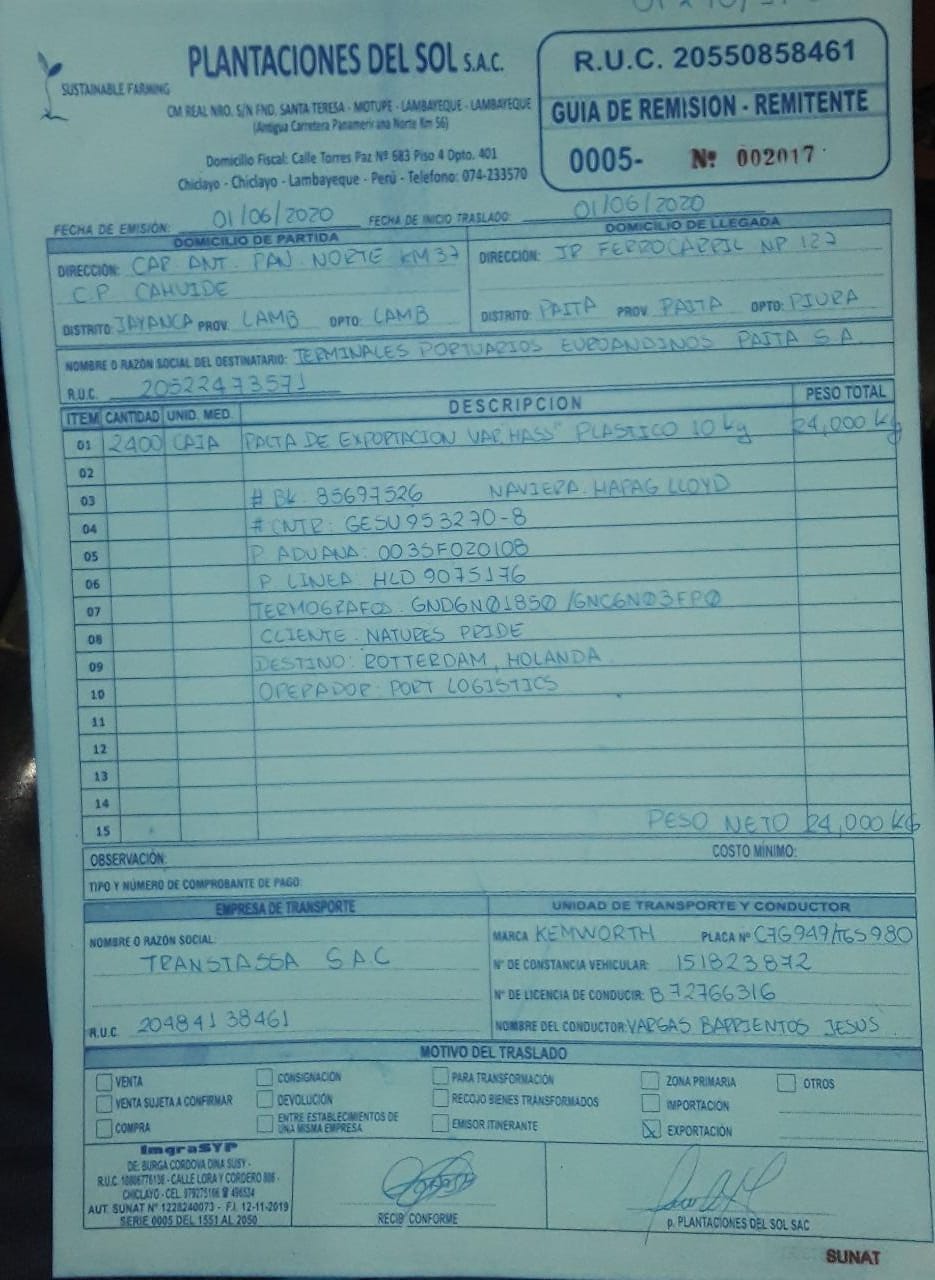 PLANTACIONES DEL SOL S.A.C.
SUSTAINABLE FARMING
CM REAL NRO. S/N FND. SANTA TERESA - MOTUPE - LAMBAYEQUE - LAMBAYEQUE
(Antigua Carretera Panamericana Norte Km 56)
Domicilio Fiscal: Calle Torres Paz Nº 683 Piso 4 Dpto. 401
Chiclayo - Chiclayo - Lambayeque - Perú - Telefono: 074-233570
R.U.C. 20550858461
GUIA DE REMISION - REMITENTE
0005- Nº 002017
FECHA DE EMISIÓN: 01/06/2020 FECHA DE INICIO TRASLADO: 01/06/2020
DOMICILIO DE PARTIDA
DIRECCIÓN: CAR. ANT. PAN. NORTE KM 37
C.P. CAHUIDE
DISTRITO: JAYANCA PROV. LAMB DPTO: LAMB
DOMICILIO DE LLEGADA
DIRECCION: JR FERROCARRIL NR 127
DISTRITO: PAITA PROV PAITA DPTO: PIURA
NOMBRE O RAZÓN SOCIAL DEL DESTINATARIO: TERMINALES PORTUARIOS EUROANDINOS PAITA S.A.
R.U.C. 20522473571
ITEM CANTIDAD UNID. MED. DESCRIPCION PESO TOTAL
01 2400 CAJA PALTA DE EXPORTACION VAR "HASS" PLASTICO 10 kg 24,000 kg
02
03 # BK: 85697526 NAVIERA: HAPAG LLOYD
04 # CNTR: GESU 953270-8
05 P. ADUANA: 0035F020108
06 P. LINEA: HLD 9075176
07 TERMOGRAFOS: GND6N01850 /GNC6N03FP0
08 CLIENTE: NATURES PRIDE
09 DESTINO: ROTTERDAM, HOLANDA
10 OPERADOR: PORT LOGISTICS
11
12
13
14
15 PESO NETO 24,000 KG
OBSERVACIÓN: COSTO MÍNIMO:
TIPO Y NÚMERO DE COMPROBANTE DE PAGO:
EMPRESA DE TRANSPORTE
NOMBRE O RAZÓN SOCIAL:
TRANSTASSA S.A.C
R.U.C. 20484138461
UNIDAD DE TRANSPORTE Y CONDUCTOR
MARCA KEMWORTH PLACA Nº C7G949/TGS980
Nº DE CONSTANCIA VEHICULAR: 151823872
Nº DE LICENCIA DE CONDUCIR: B 72766316
NOMBRE DEL CONDUCTOR: VARGAS BARRIENTOS JESUS
MOTIVO DEL TRASLADO
VENTA CONSIGNACIÓN PARA TRANSFORMACIÓN ZONA PRIMARIA OTROS
VENTA SUJETA A CONFIRMAR DEVOLUCIÓN RECOJO BIENES TRANSFORMADOS IMPORTACIÓN
COMPRA ENTRE ESTABLECIMIENTOS DE UNA MISMA EMPRESA EMISOR ITINERANTE X EXPORTACIÓN
ImgraSYP
DE: BURGA CORDOVA DINA SUSY -
R.U.C. 10806776138 - CALLE LORA Y CORDERO 806 -
CHICLAYO - CEL. 979275166
AUT. SUNAT Nº 1228240073 - F.I. 12-11-2019
SERIE 0005 DEL 1551 AL 2050
RECIBÍ CONFORME
p. PLANTACIONES DEL SOL SAC
SUNAT